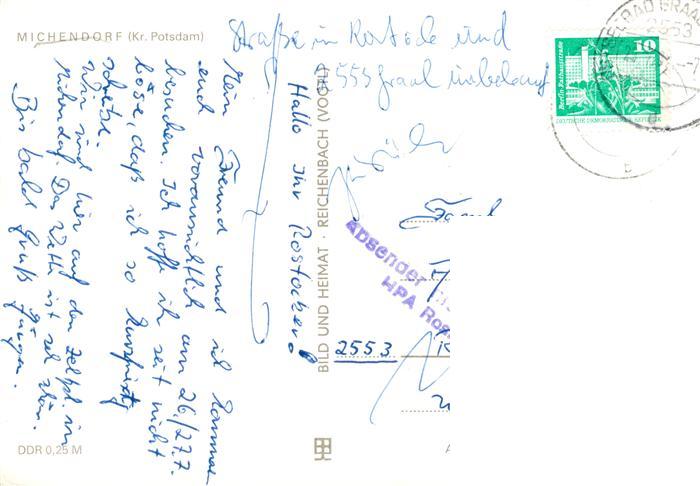 MICHENDORF (Kr. Potsdam)
Straße in Rostock und
2553 Graal unbekannt
zurück
10
Berlin, Rathausstraße
DEUTSCHE DEMOKRATISCHE REPUBLIK
2553
Hallo Ihr Rostocker!
Mein Freund und ich kommen
euch voraussichtlich am 26./27.7.
besuchen. Ich hoffe ihr seit nicht
böse, daß ich so kurzfristig
schreibe.
Wir sind hier auf den Zeltpl. in
Michendorf. Das Wetter ist sehr schön.
Bis bald Gruß Jürgen.
BILD UND HEIMAT · REICHENBACH (VOGTL)
Absender
HPA Ros
2553
DDR 0,25 M